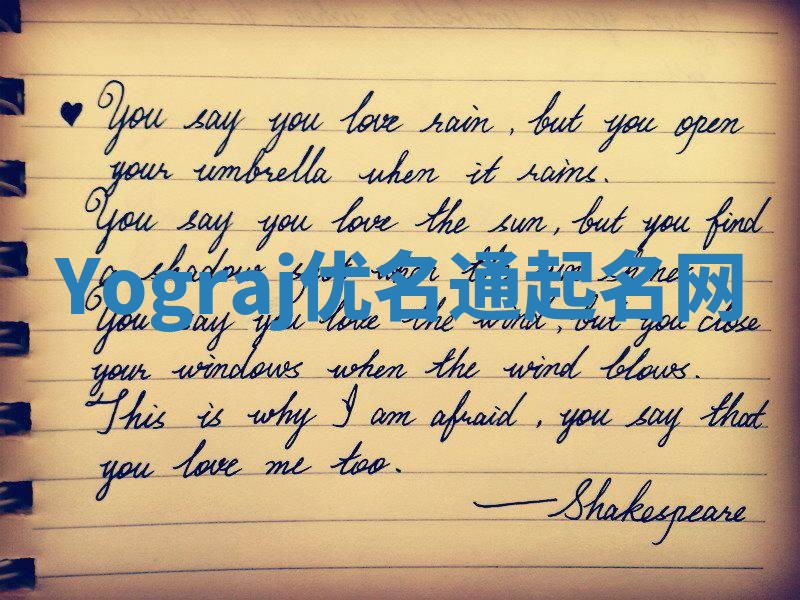 ♥ You say you love rain, but you open
your umbrella when it rains.
You say you love the sun, but you find
a shadow spot when the sun shines.
Yograj优名通起名网
You say you love the wind, but you close
your windows when the wind blows.
This is why I am afraid, you say that
you love me too.
— Shakespeare